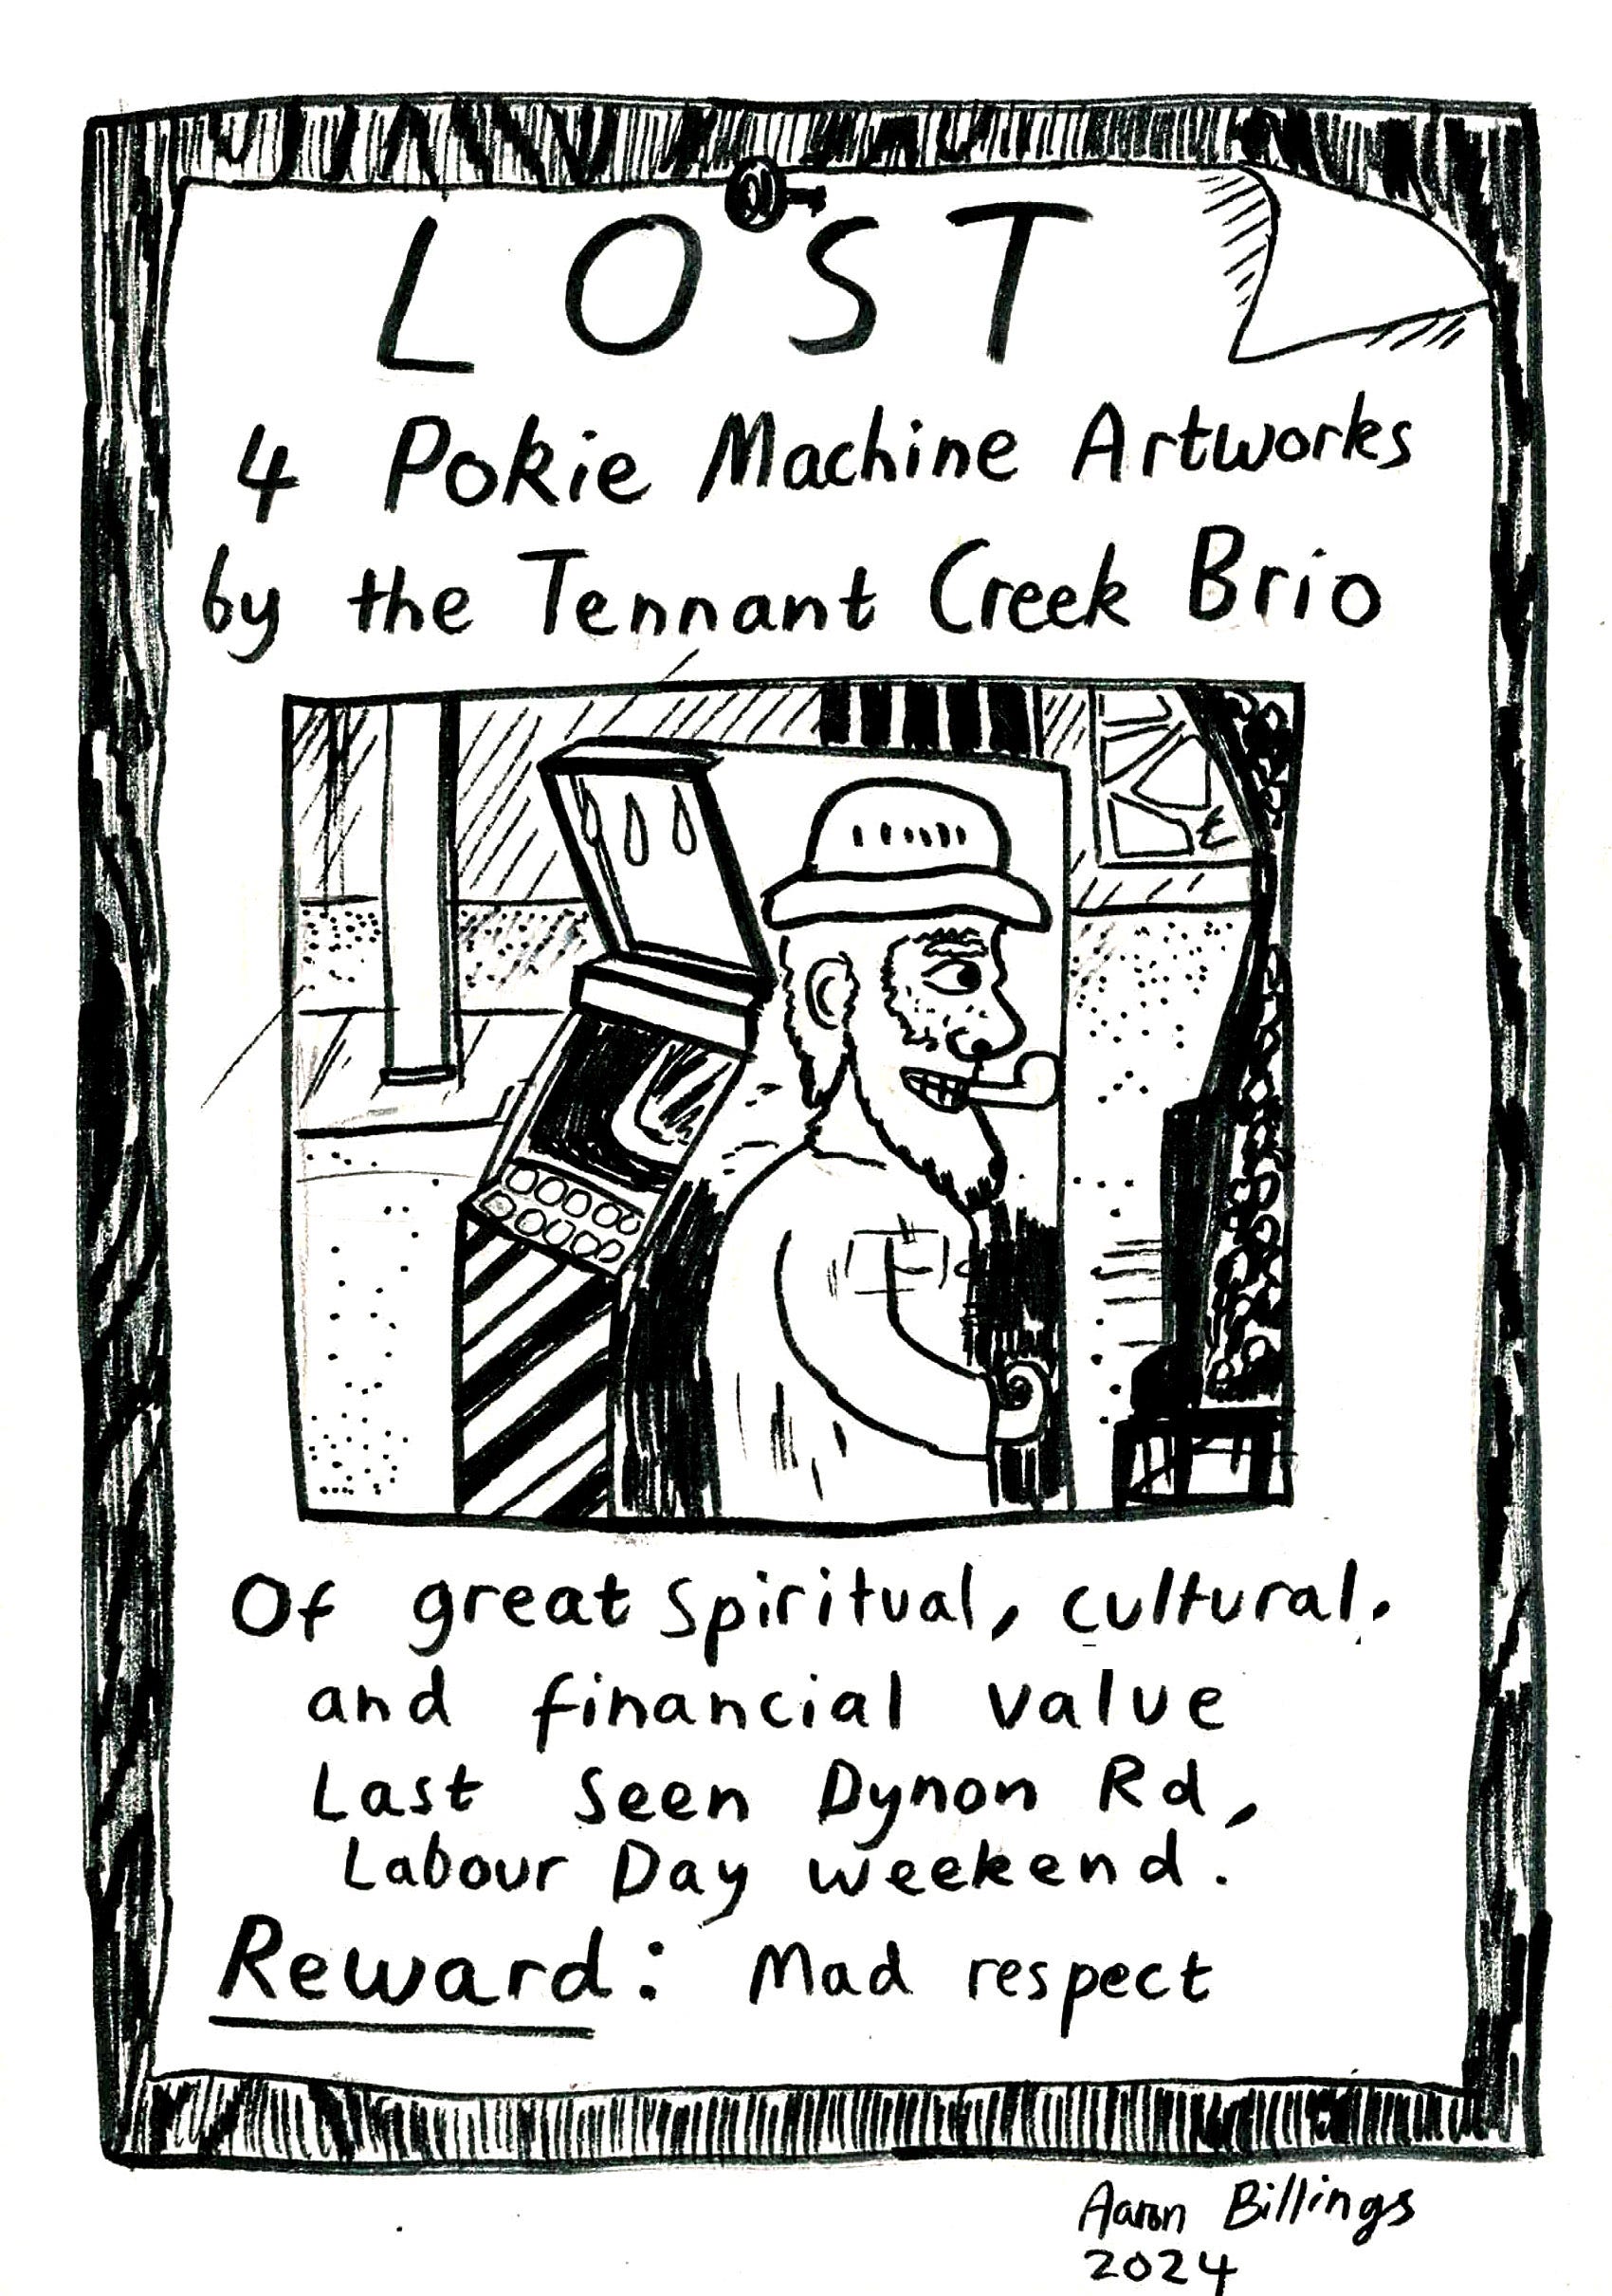 LOST
4 Pokie Machine Artworks
by the Tennant Creek Brio
Of great spiritual, cultural,
and financial value
Last seen Dynon Rd,
Labour Day weekend.
Reward: Mad respect
Aaron Billings
2024